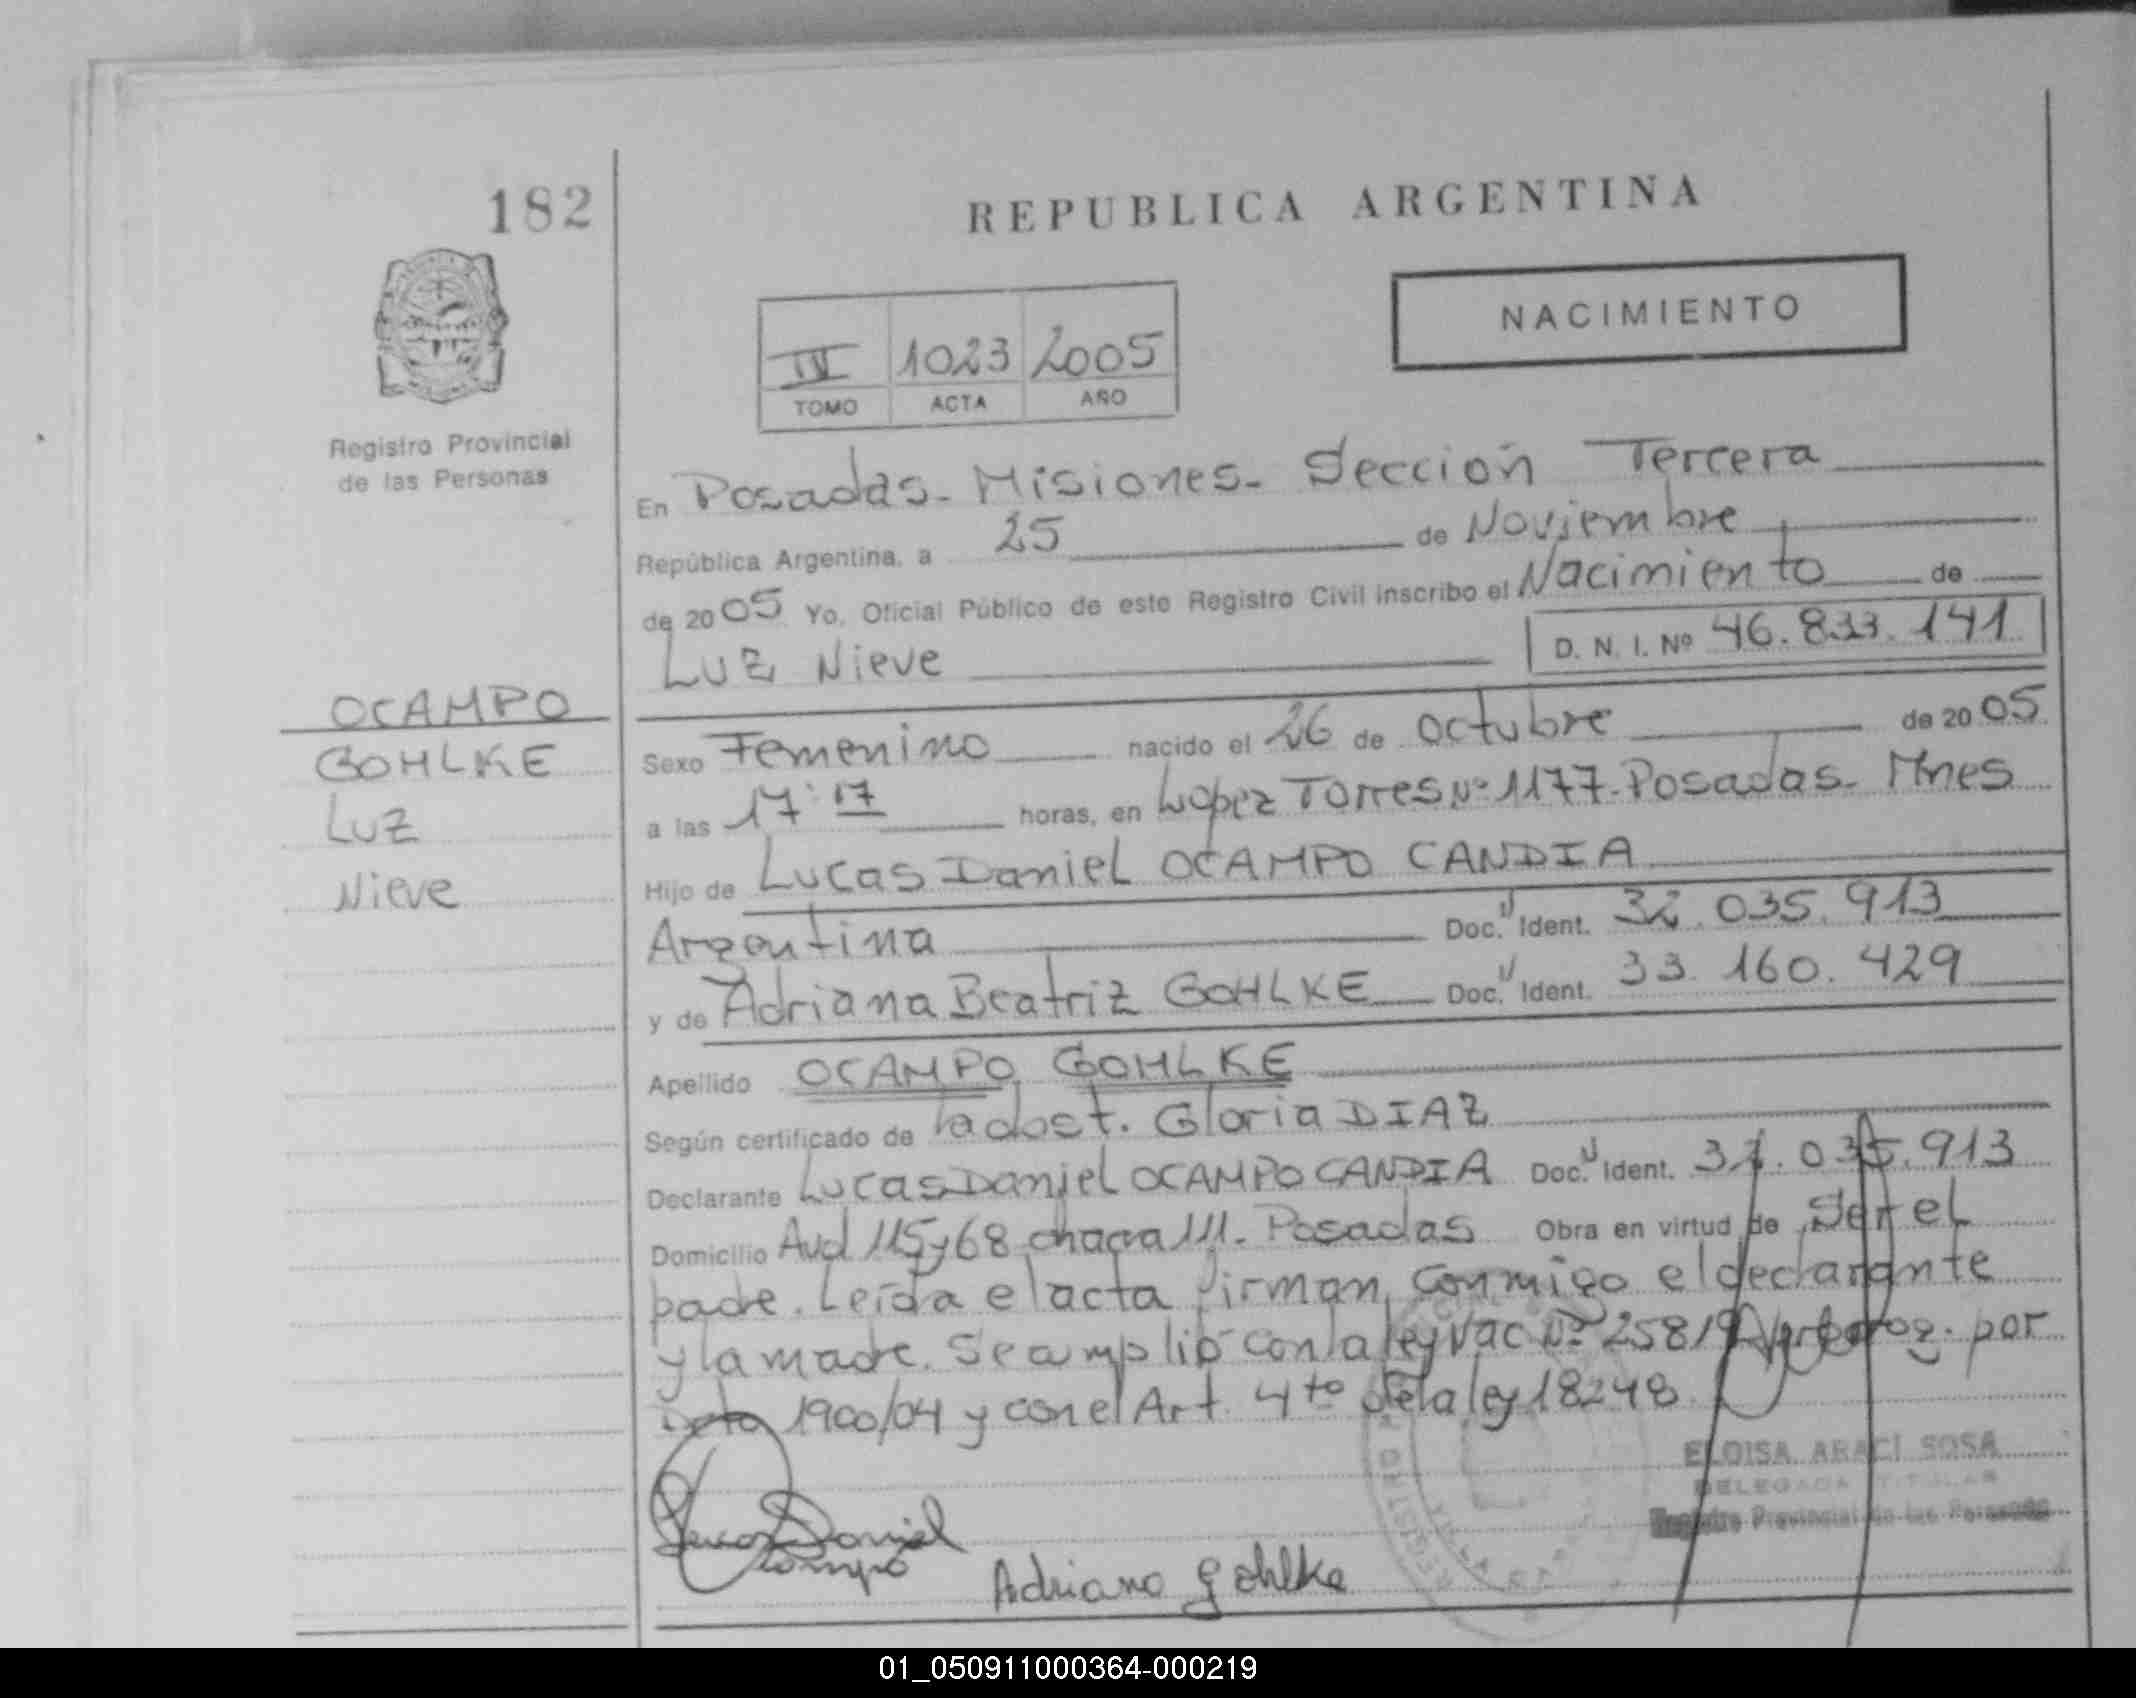 182
REPUBLICA ARGENTINA
NACIMIENTO
IV 1023 2005
TOMO ACTA AÑO
Registro Provincial
de las Personas
En Posadas - Misiones - Sección Tercera
República Argentina, a 25 de Noviembre
de 2005 Yo, Oficial Público de este Registro Civil inscribo el Nacimiento de
Luz Nieve D. N. I. Nº 46.833.141
OCAMPO
GOHLKE
Luz
Nieve
Sexo Femenino nacido el 26 de octubre de 2005
a las 17:17 horas, en Lopez Torres Nº 1177 - Posadas - Mnes
Hijo de Lucas Daniel OCAMPO CANDIA
Argentina Doc. Ident. 32.035.913
y de Adriana Beatriz GOHLKE Doc. Ident. 33.160.429
Apellido OCAMPO GOHLKE
Según certificado de la obst. Gloria DIAZ
Declarante Lucas Daniel OCAMPO CANDIA Doc. Ident. .035.913
Domicilio Avd 115 y 68 chacra 111 - Posadas Obra en virtud de Ser el
padre. Leída el acta firman conmigo el declarante
y la madre. Se amplió con la ley Nac Nº 25819 prorrog. por
Dcto 1900/04 y con el Art. 4to de la ley 18248
ELOISA ARACI SOSA
DELEGADA TITULAR
Registro Provincial de las Personas
Lucas Daniel
Ocampo
Adriana Gohlke
01_050911000364-000219